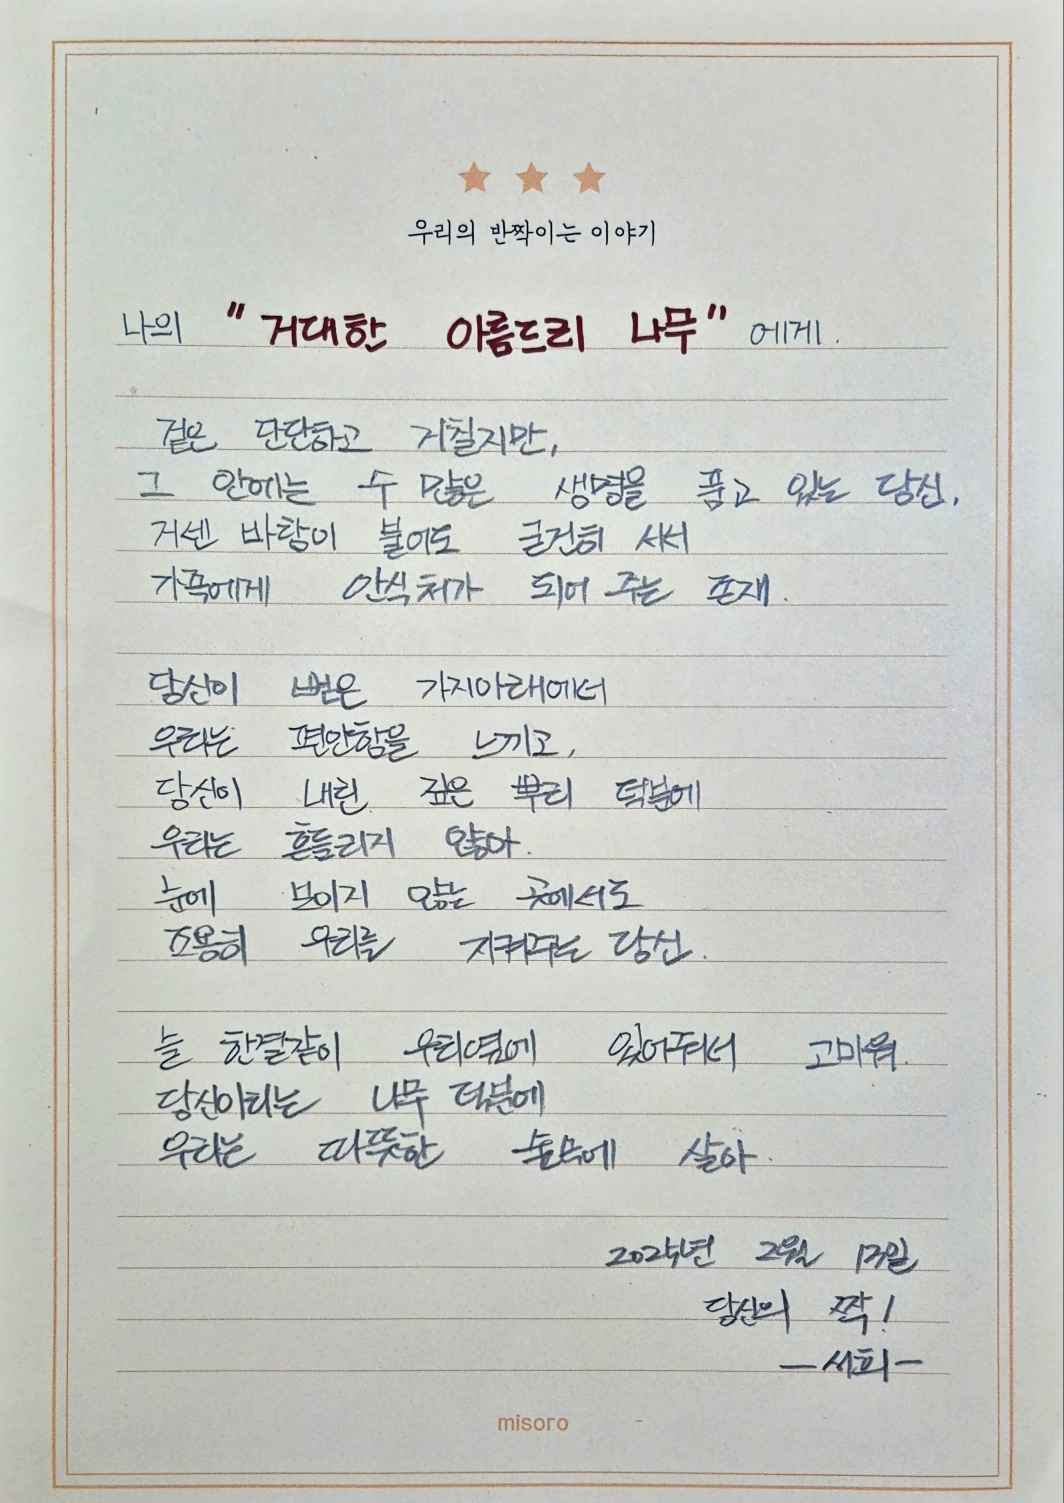 우리의 반짝이는 이야기
나의 "거대한 아름드리 나무"에게.
겉은 단단하고 거칠지만,
그 안에는 수 많은 생명을 품고 있는 당신,
거센 바람이 불어도 굳건히 서서
가족에게 안식처가 되어 주는 존재.
당신이 뻗은 가지아래에서
우리는 편안함을 느끼고,
당신이 내린 깊은 뿌리 덕분에
우리는 흔들리지 않아.
눈에 보이지 않는 곳에서도
조용히 우리를 지켜주는 당신.
늘 한결같이 우리옆에 있어줘서 고마워.
당신이라는 나무 덕분에
우리는 따뜻한 숲속에 살아.
2025년 2월 13일
당신의 짝!
-서희-
misoro